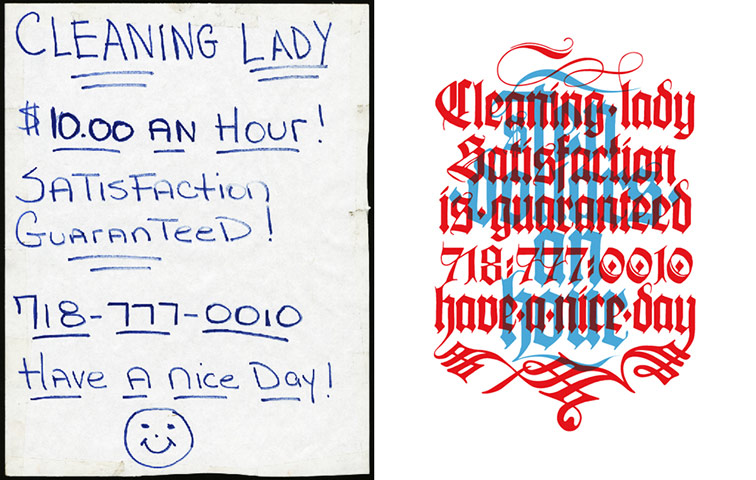 CLEANING LADY
$10.00 AN HOUR!
SATISFACTION
GUARANTEED!
718-777-0010
Have A Nice Day!
Cleaning·lady
Satisfaction
is·guaranteed
718·777·0010
have·a·nice·day
ten
dollars
an
hour